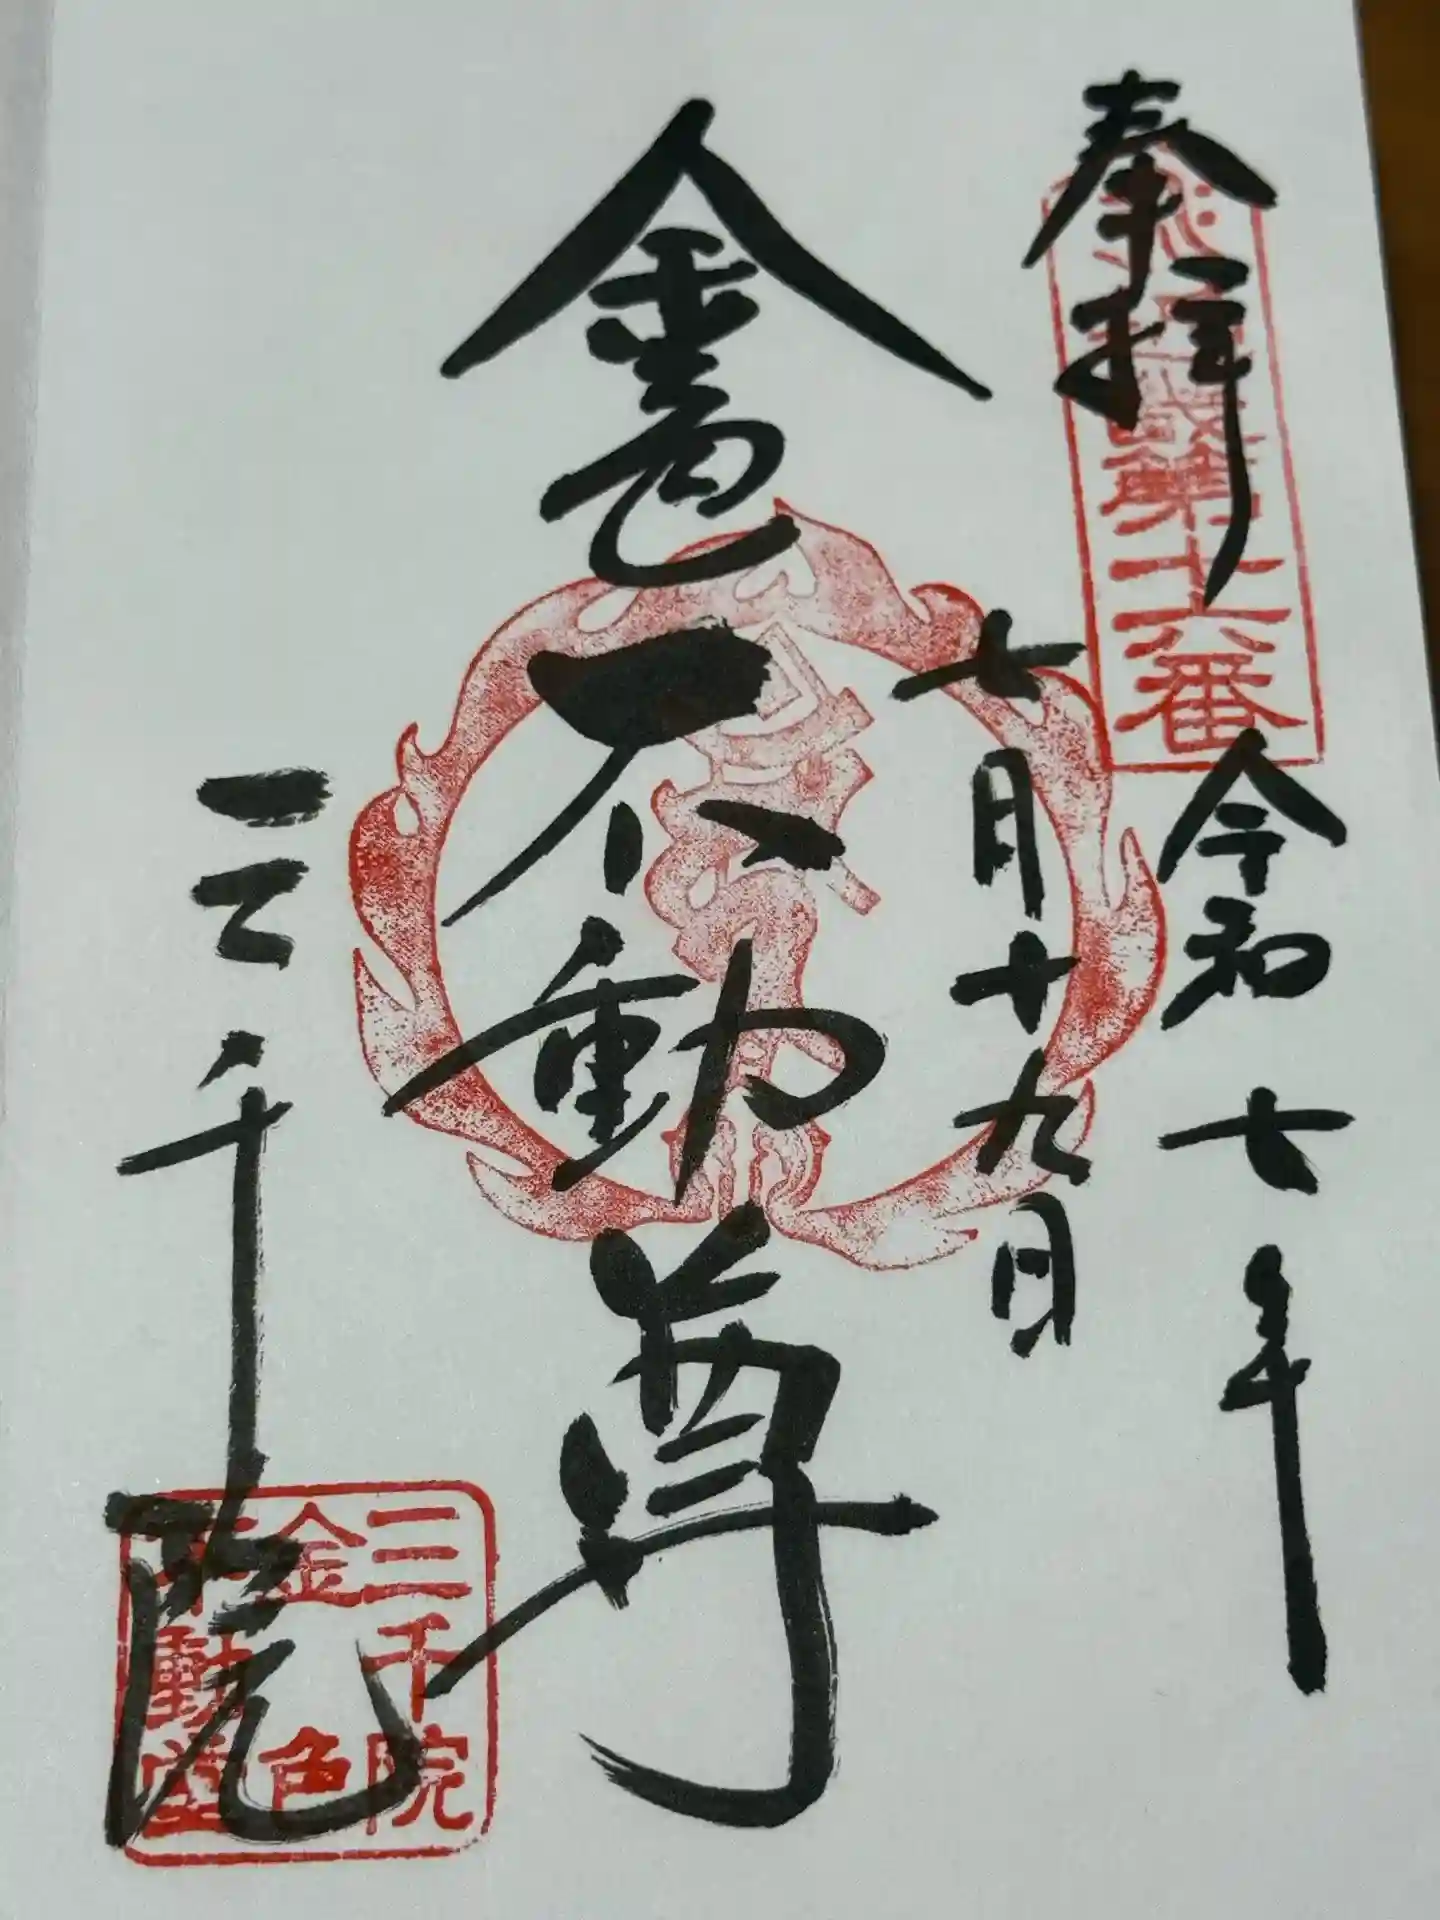 奉拝
近畿第十六番
令和七年
七月十九日
金色不動尊
三千院
三千院
金色
不動堂